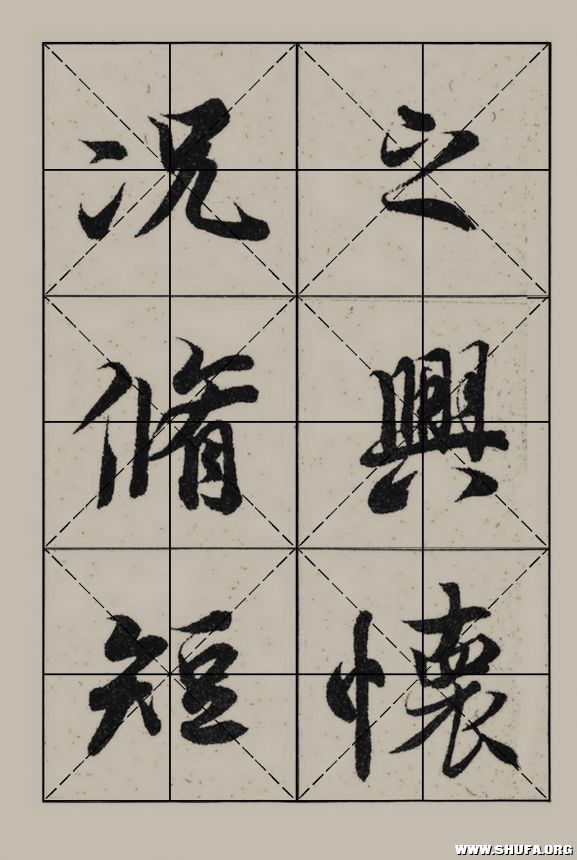 之興懷
况脩短
WWW.SHUFA.ORG